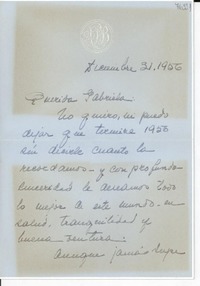 Diciembre 31, 1956
Querida Gabriela
No quiero, ni puedo
dejar que termine 1956
sin decirle cuanto la
recordamos - y con profunda
sinceridad le deseamos todo
lo mejor de este mundo - en
salud, tranquilidad y
buena ventura.
Aunque jamás supe